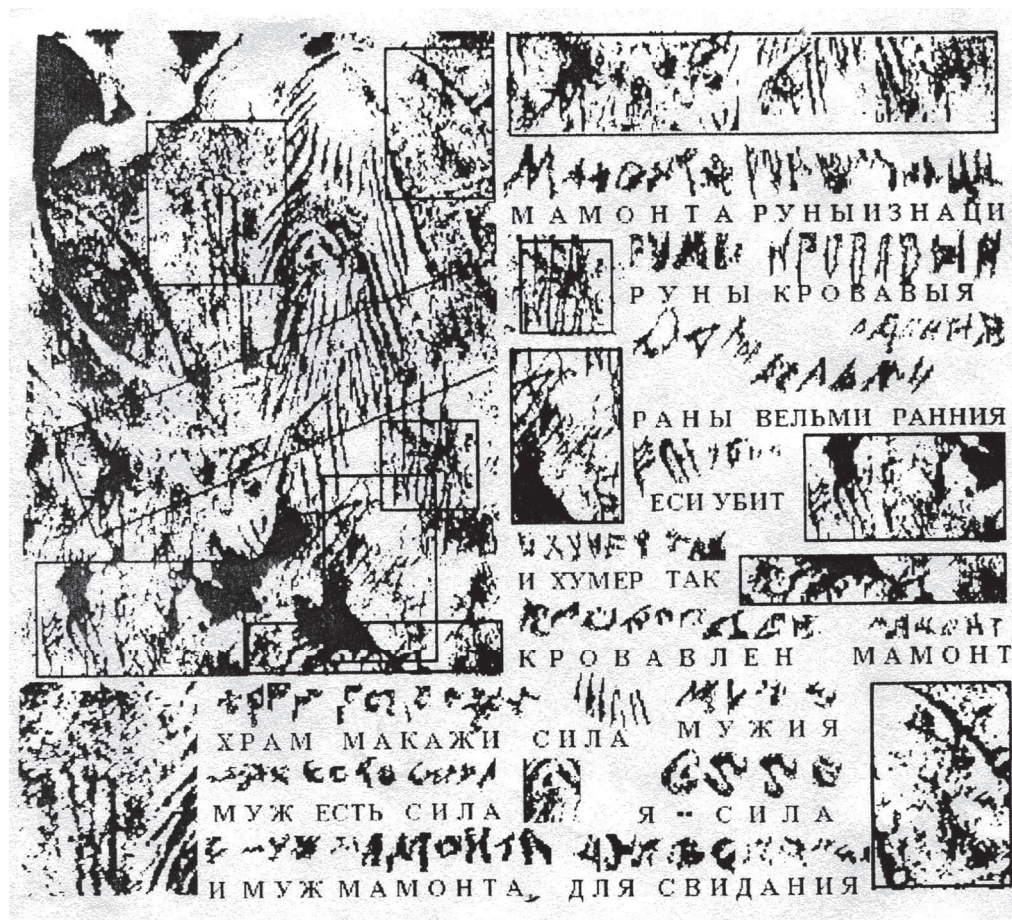 МАМОНТА РУНЫ ИЗНАЦИ
РУНЫ КРОВАВЫЯ
РАНЫ ВЕЛЬМИ РАННИЯ
ЕСИ УБИТ
И ХУМЕР ТАК
КРОВАВЛЕН МАМОНТ
ХРАМ МАКАЖИ СИЛА МУЖИЯ
МУЖ ЕСТЬ СИЛА Я -- СИЛА
И МУЖ МАМОНТА, ДЛЯ СВИДАНИЯ